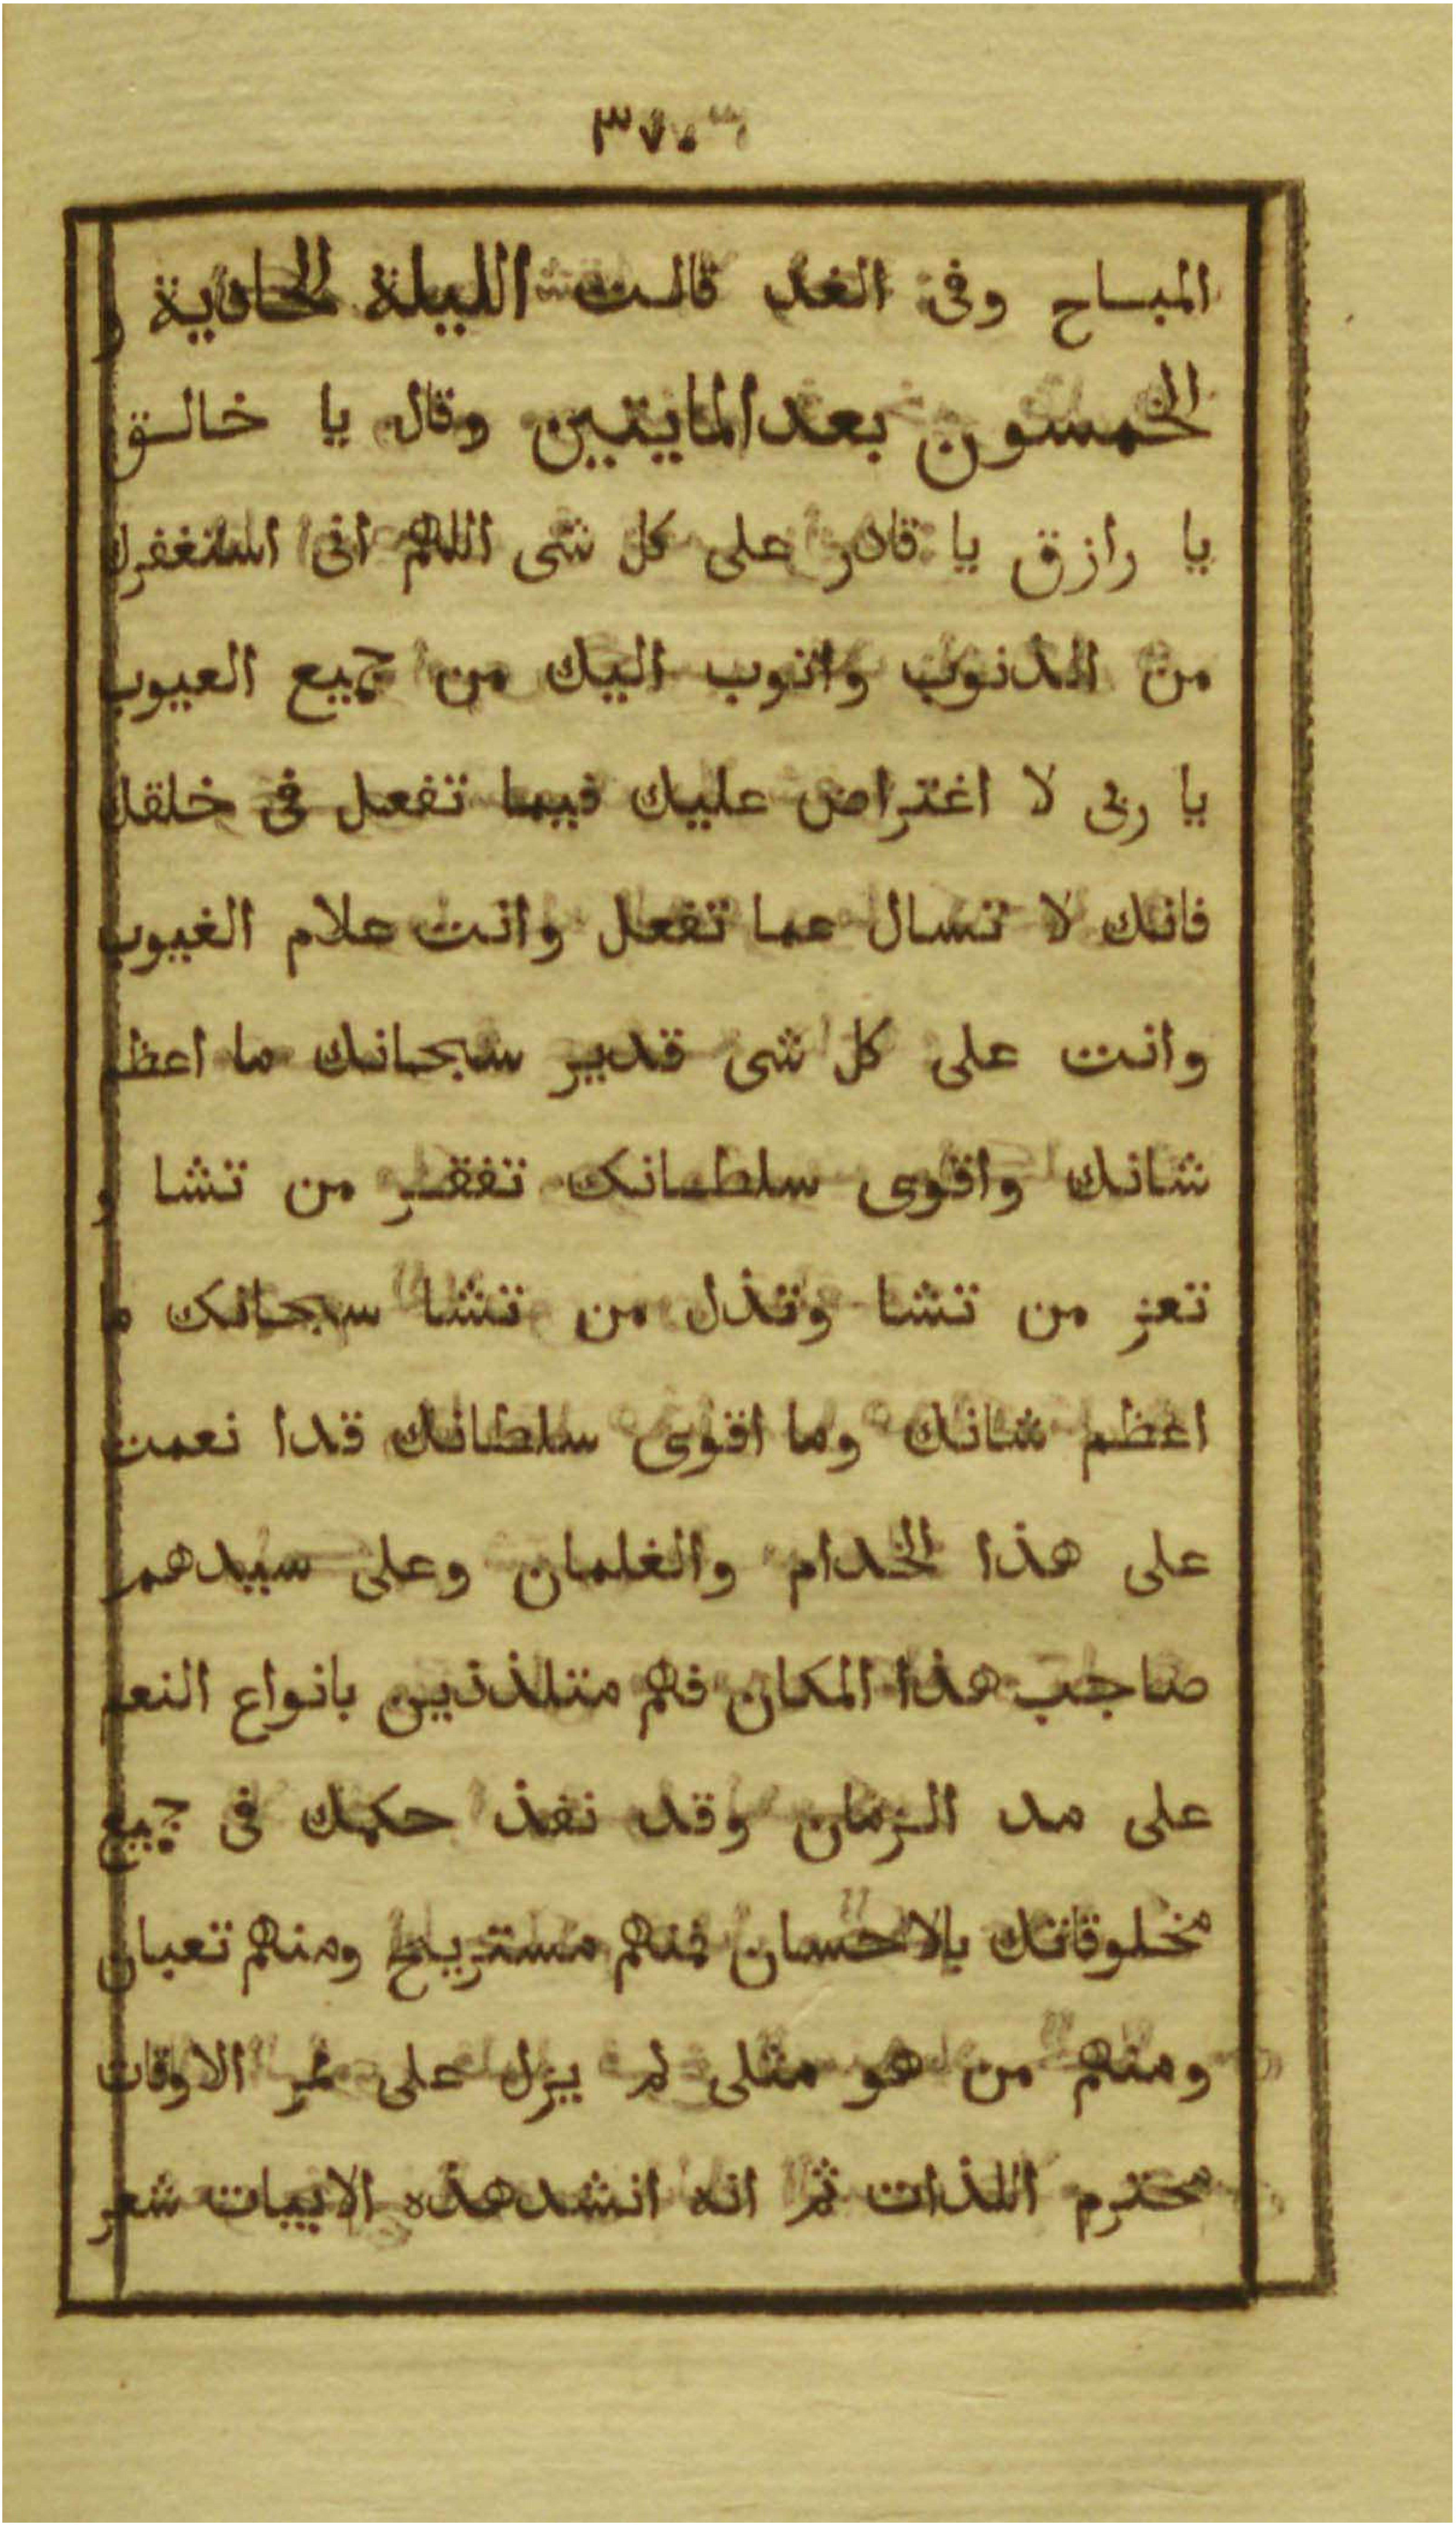 ٣٧٠
المباح وفى الغد قالت الليلة الحادية و
الخمسون بعد المايتين وقال يا خالق
يا رازق يا قادر على كل شى اللهم انى استغفرك
من الذنوب واتوب اليك من جميع العيوب
يا ربى لا اغتراض عليك فيما تفعل فى خلقك
فانك لا تسال عما تفعل وانت علام الغيوب
وانت على كل شى قدير سبحانك ما اعظم
شانك واقوى سلطانك تفقر من تشا و
تعز من تشا وتذل من تشا سبحانك ما
اعظم شانك وما اقوى سلطانك قدا نعمت
على هذا الخدام والغلمان وعلى سيدهم
صاحب هذا المكان فهم متلذذين بانواع النعم
على مد الزمان وقد نفذ حكمك فى جميع
مخلوقاتك بالاحسان فمنهم مستريح ومنهم تعبان
ومنهم من هو مثلى لم يزل على ممر الاوقات
محترم اللذات ثم انه انشد هذه الابيات شعر